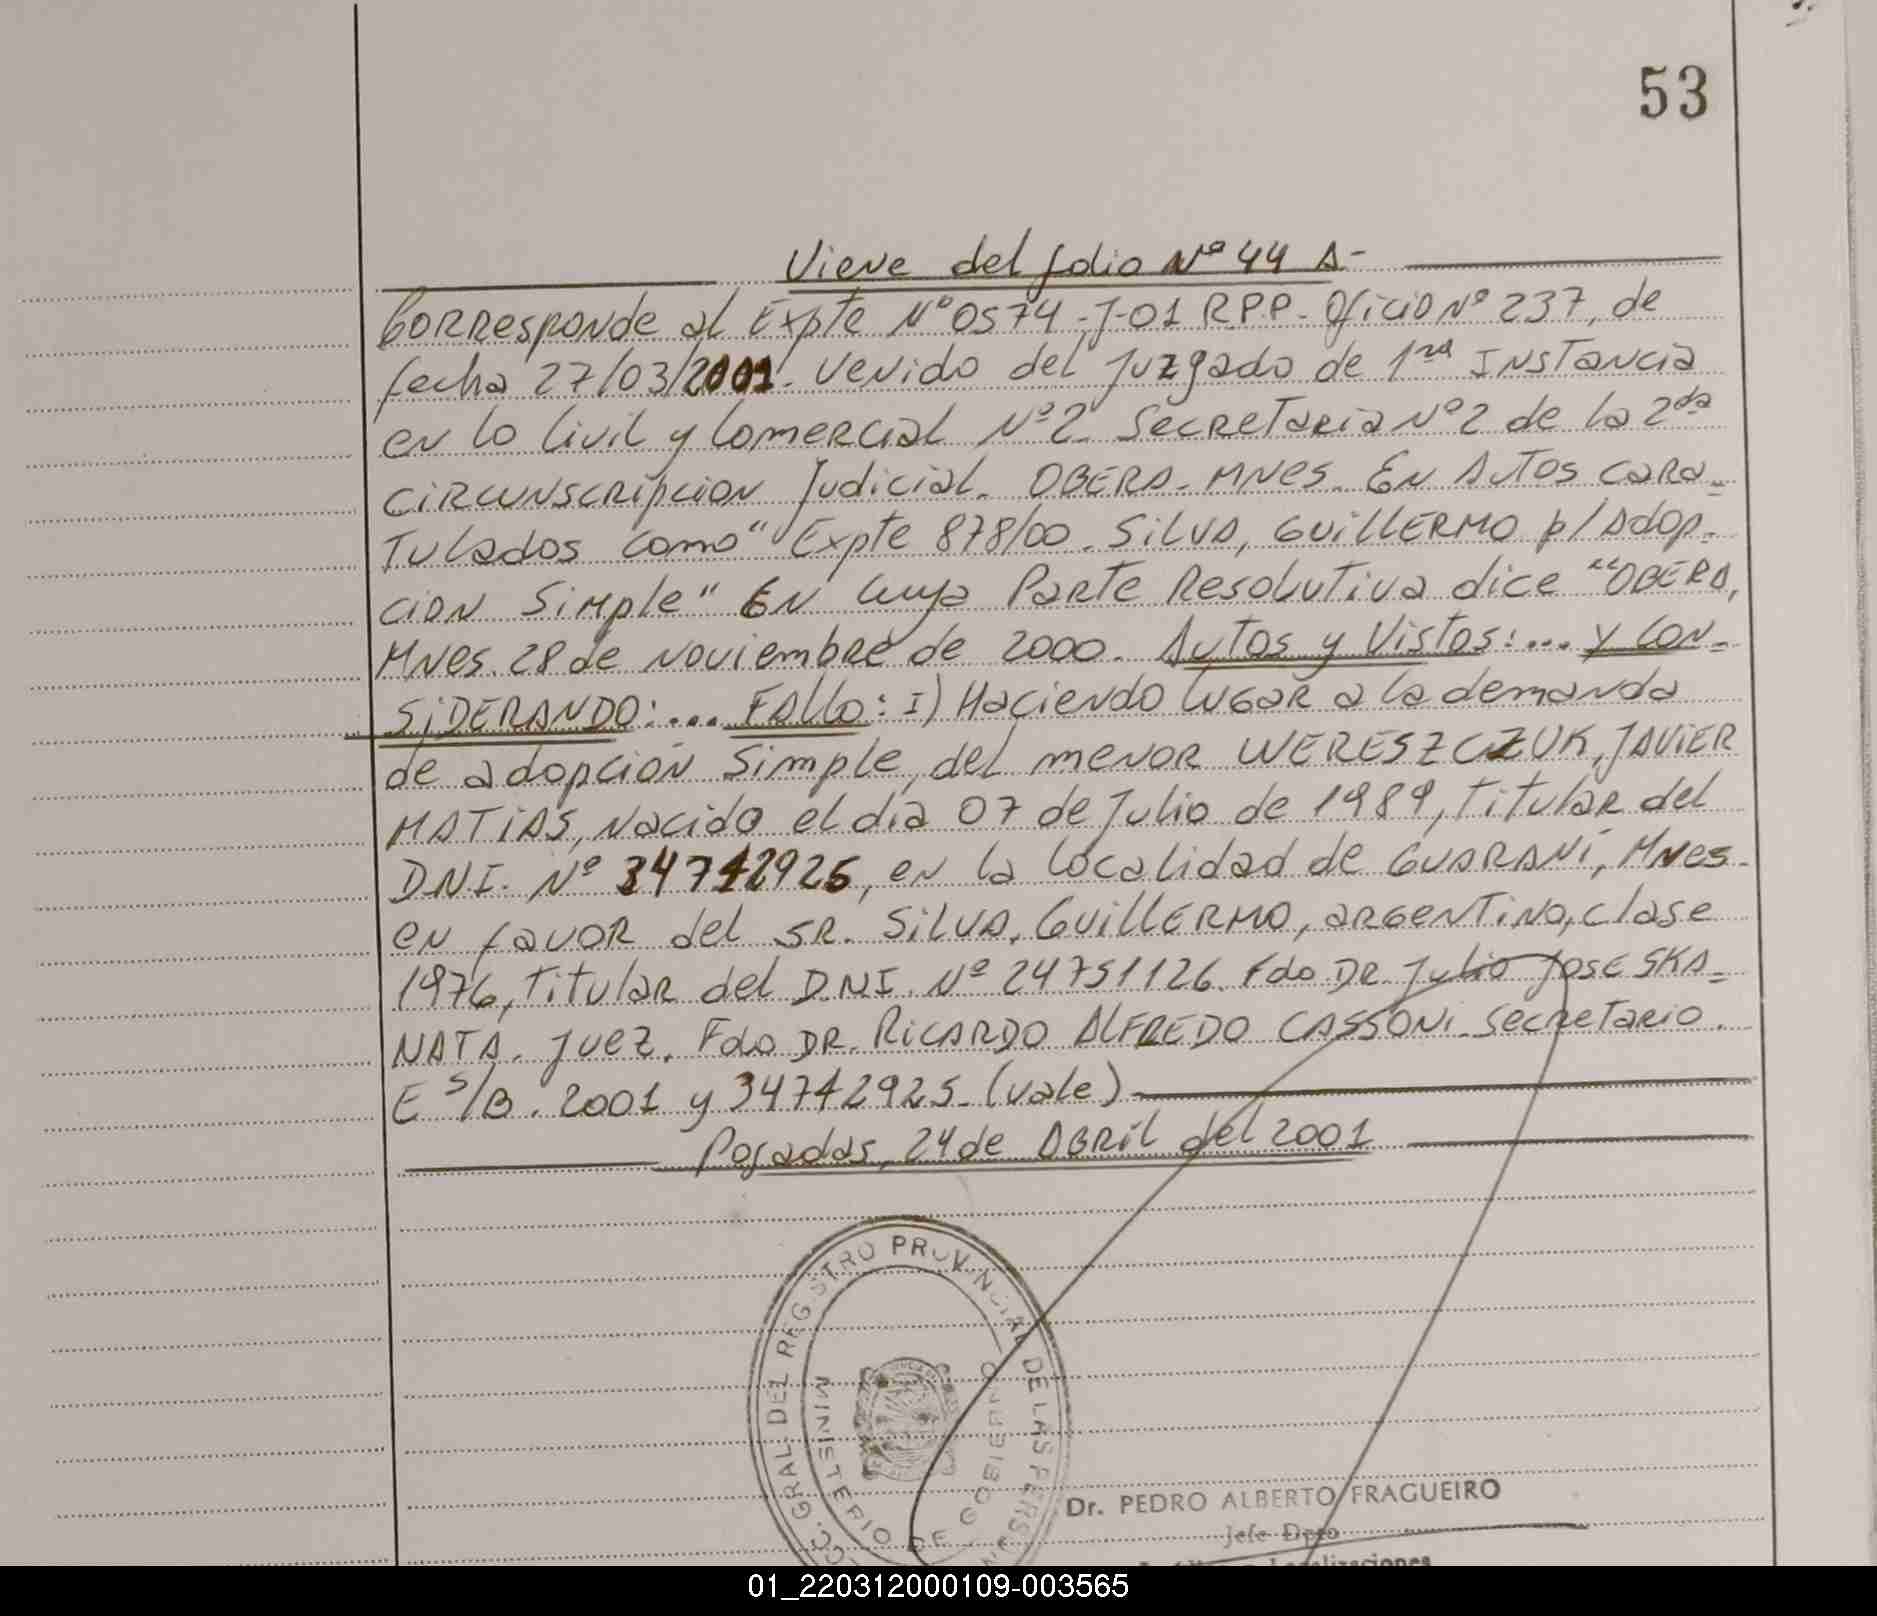 53
Viene del folio Nº 44 A-
Corresponde al Expte Nº 0574-J-01 R.P.P. Oficio Nº 237, de
fecha 27/03/2001. Venido del Juzgado de 1ra Instancia
en lo Civil y Comercial Nº 2 Secretaria Nº 2 de la 2da
circunscripcion Judicial. OBERA. MNES. En Autos cara-
tulados como "Expte 878/00. SILVA, GUILLERMO p/Adop-
cion Simple" En cuya Parte Resolutiva dice "OBERA,
Mnes. 28 de Noviembre de 2000. Autos y Vistos:... y CON-
SIDERANDO:... FALLO: I) Haciendo lugar a la demanda
de adopción simple, del menor WERESZCZUK, JAVIER
MATIAS, nacido el dia 07 de Julio de 1989, titular del
D.N.I. Nº 34742925, en la localidad de GUARANÍ, Mnes.
en favor del SR. SILVA, GUILLERMO, argentino, clase
1976, titular del D.N.I. Nº 24751126. Fdo DR Julio Jose SKA-
NATA. Juez. Fdo DR. RICARDO ALFREDO CASSONI. Secretario.
E S/B. 2001 y 34742925. (vale)
Posadas, 24 de ABRIL del 2001
GRAL. DEL REGISTRO PROVINCIAL DE LAS PERSONAS
MINISTERIO DE GOBIERNO
Dr. PEDRO ALBERTO FRAGUEIRO
Jefe Dpto
01_220312000109-003565